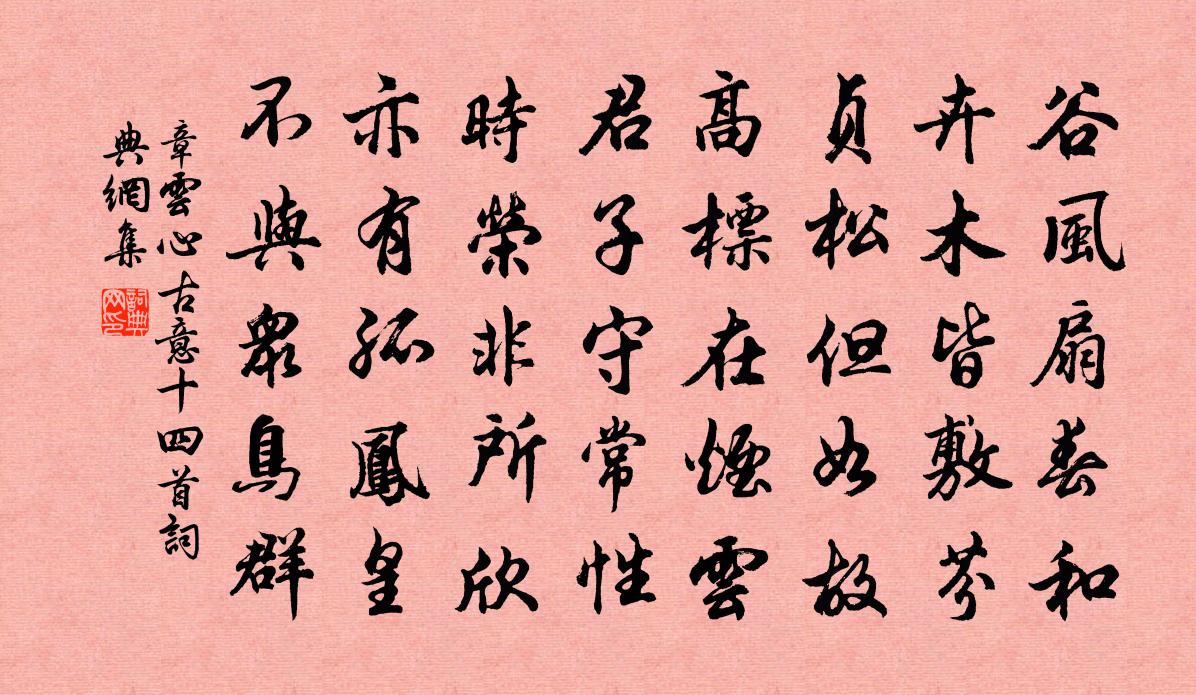 谷風扇春和
卉木皆敷芬
貞松但如故
高標在煙雲
君子守常性
時榮非所欣
亦有孤鳳皇
不與眾鳥群
章雲心古意十四首詞
典網集
詞典
网印